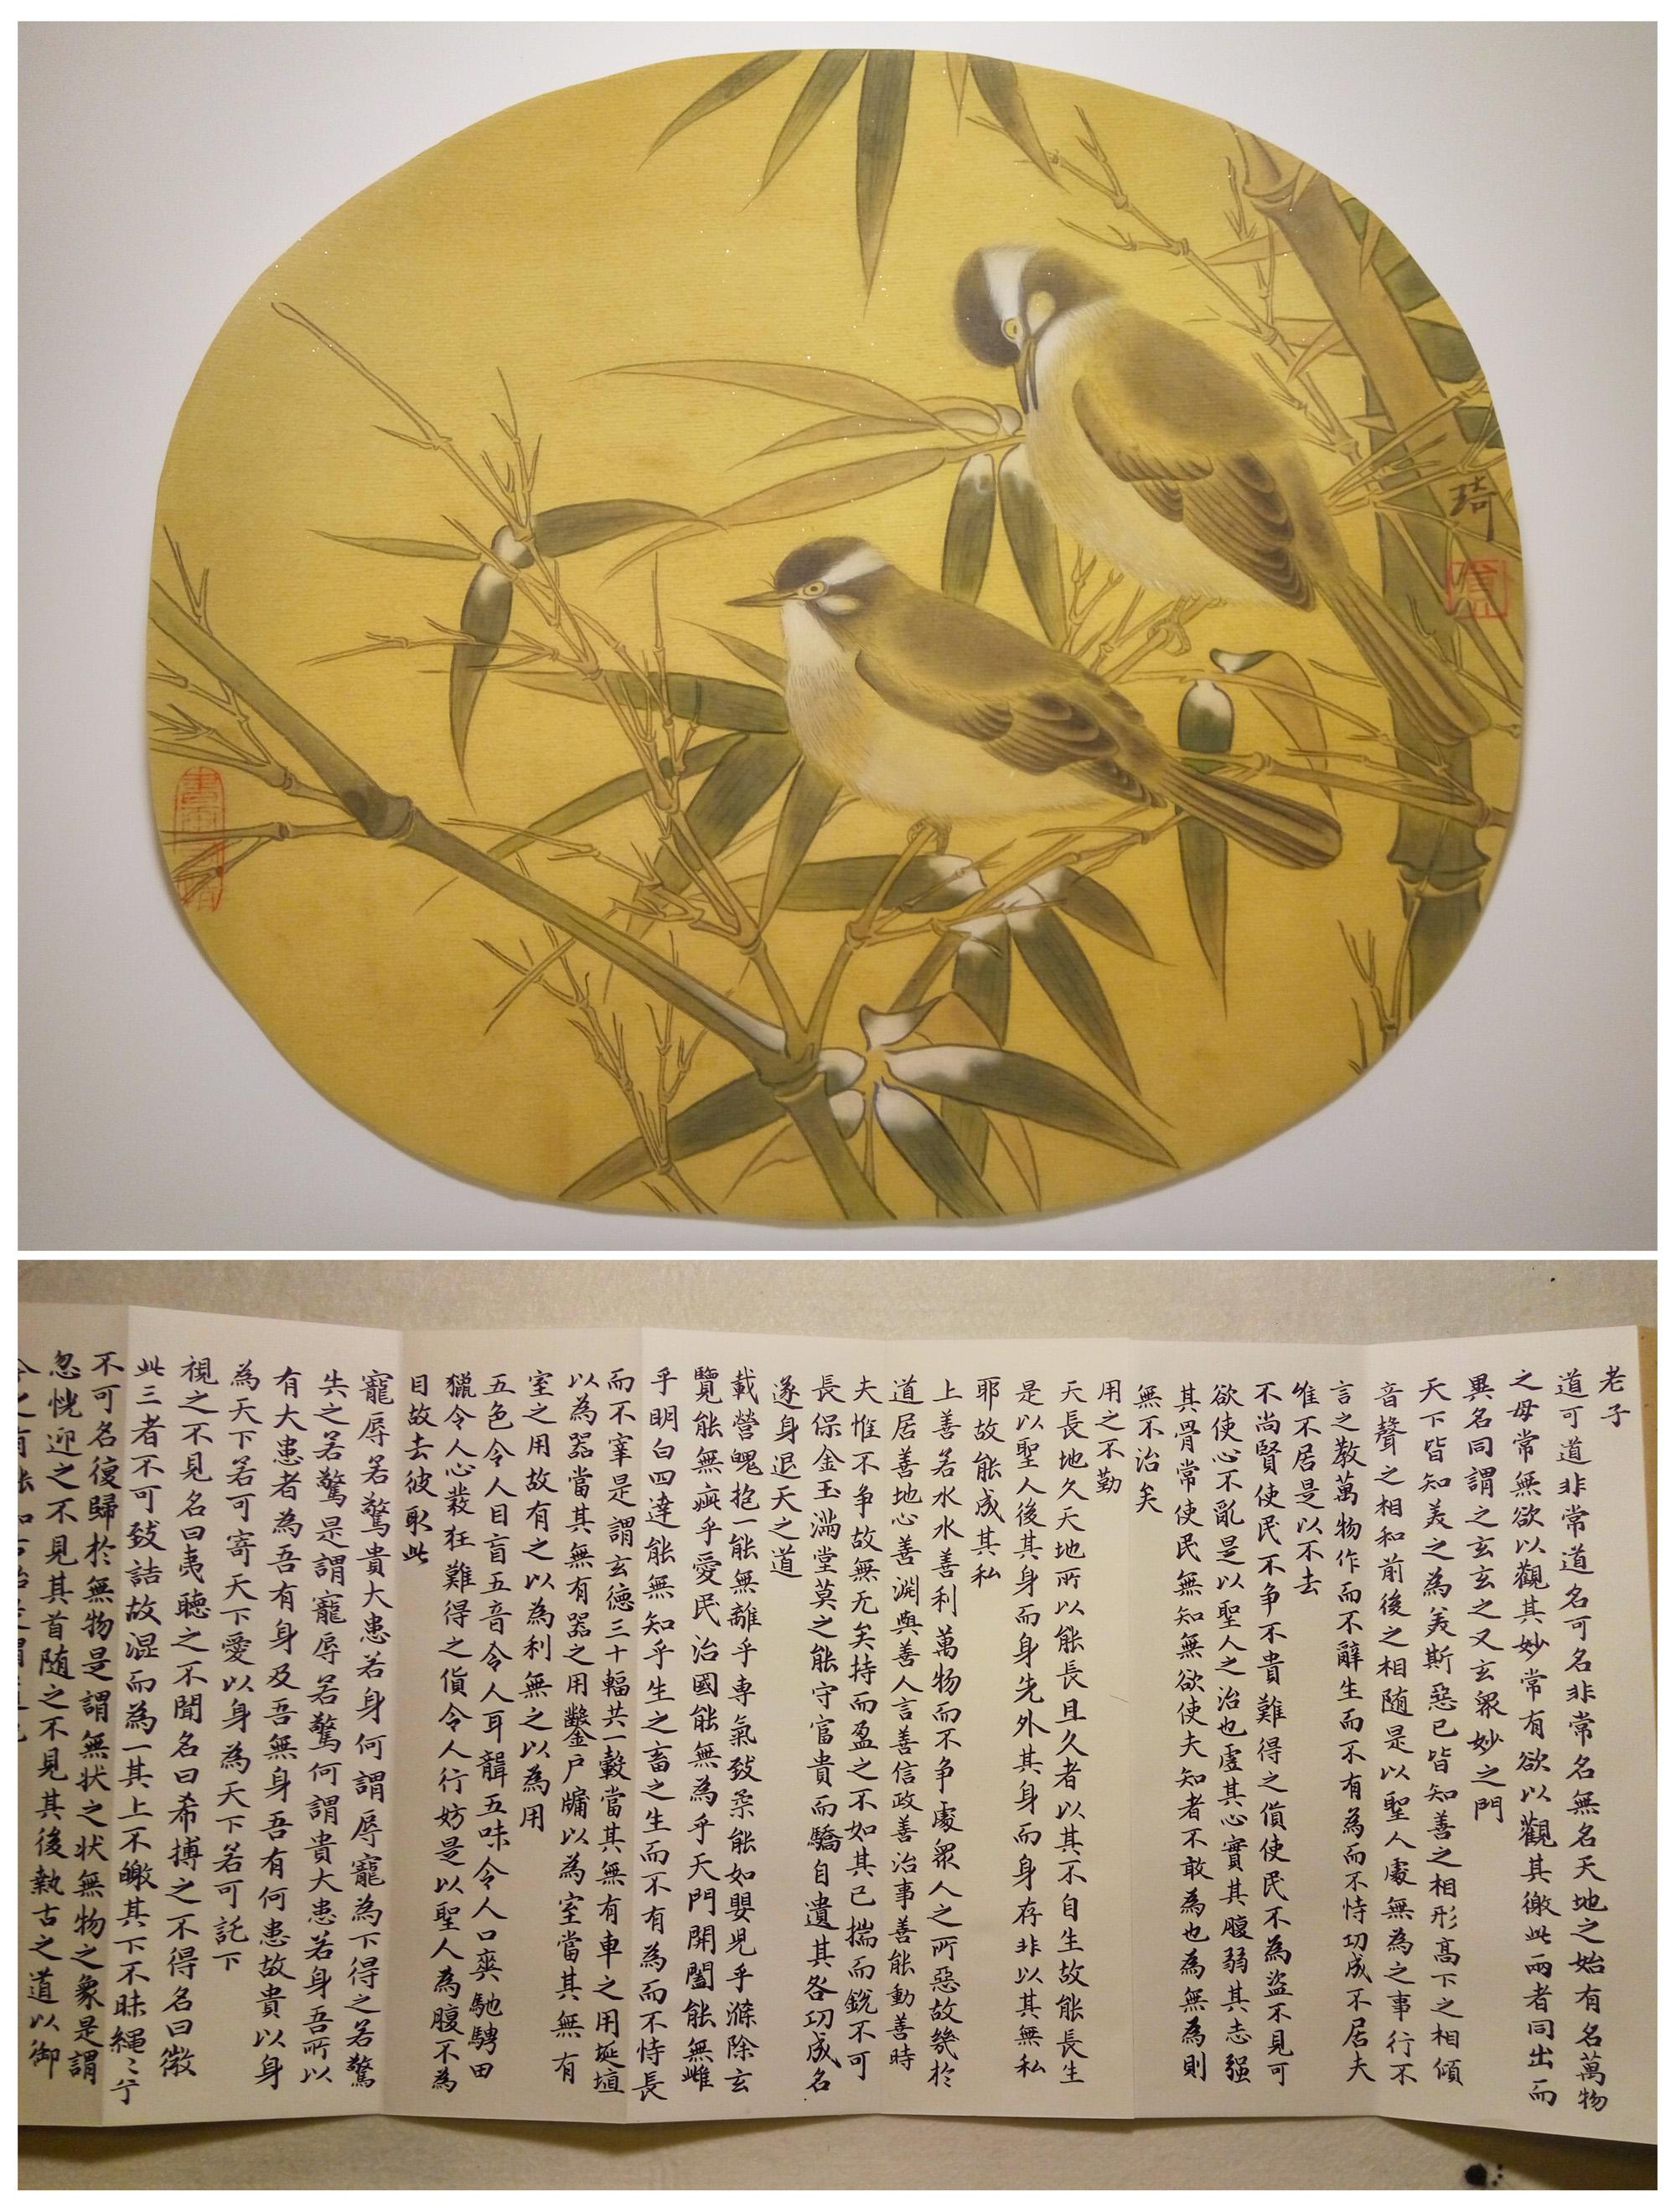 琦
老子
道可道非常道名可名非常名無名天地之始有名萬物
之母常無欲以觀其妙常有欲以觀其徼此兩者同出而
異名同謂之玄玄之又玄眾妙之門
天下皆知美之為美斯惡已皆知善之相形高下之相傾
音聲之相和前後之相随是以聖人處無為之事行不
言之教萬物作而不辭生而不有為而不恃功成不居夫
唯不居是以不去
不尚賢使民不爭不貴難得之貨使民不為盜不見可
欲使心不亂是以聖人之治也虛其心實其腹弱其志强
其骨常使民無知無欲使夫知者不敢為也為無為則
無不治矣
用之不勤
天長地久天地所以能長且久者以其不自生故能長生
是以聖人後其身而身先外其身而身存非以其無私
耶故能成其私
上善若水水善利萬物而不争處眾人之所惡故幾於
道居善地心善淵與善人言善信政善治事善能動善時
夫惟不争故無尤矣持而盈之不如其已揣而銳不可
長保金玉滿堂莫之能守富貴而驕自遺其咎功成名
遂身退天之道
載營魄抱一能無離乎專氣致柔能如嬰兒乎滌除玄
覽能無疵乎愛民治國能無為乎天門開闔能無雌
乎明白四達能無知乎生之畜之生而不有為而不恃長
而不宰是謂玄德三十輻共一轂當其無有車之用埏埴
以為器當其無有器之用鑿户牖以為室當其無有
室之用故有之以為利無之以為用
五色令人目盲五音令人耳聾五味令人口爽馳騁田
獵令人心發狂難得之貨令人行妨是以聖人為腹不為
目故去彼取此
寵辱若驚貴大患若身何謂辱寵為下得之若驚
失之若驚是謂寵辱若驚何謂貴大患若身吾所以
有大患者為吾有身及吾無身吾有何患故貴以身
為天下若可寄天下愛以身為天下若可託下
視之不見名曰夷聽之不聞名曰希搏之不得名曰微
此三者不可致詰故混而為一其上不皦其下不昧繩〻兮
不可名復歸於無物是謂無状之状無物之象是謂
忽恍迎之不見其首随之不見其後執古之道以御